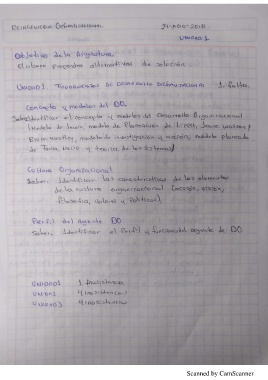 REINGENIERIA ORGANIZACIONAL 31-AGO-2018
UNIDAD 1
Objetivo de la Asignatura
Elaborar proyectos alternativos de solución
UNIDAD 1. FUNDAMENTOS DE DESARROLLO ORGANIZACIONAL 1. faltas.
Concepto y modelos del DO.
Saber: Identificar el concepto y modelos de Desarrollo Organizacional
(Modelo de Lewin, modelo de Planeación de Lippit,
modelo de investigación y acción, modelo planeado
de Faria, Mello y teorica de los sistemas)
Cultura Organizacional
Saber: Identificar las características de los elementos
de la cultura organizacional (misión, visión,
filosofía, valores y Políticas).
Perfil del Agente DO
Saber: Identificar el Perfil y funciones del agente de DO
UNIDAD 1 1 inasistencia
UNIDAD 2 4 inasistencias
UNIDAD 3 4 inasistencias
Scanned by CamScanner